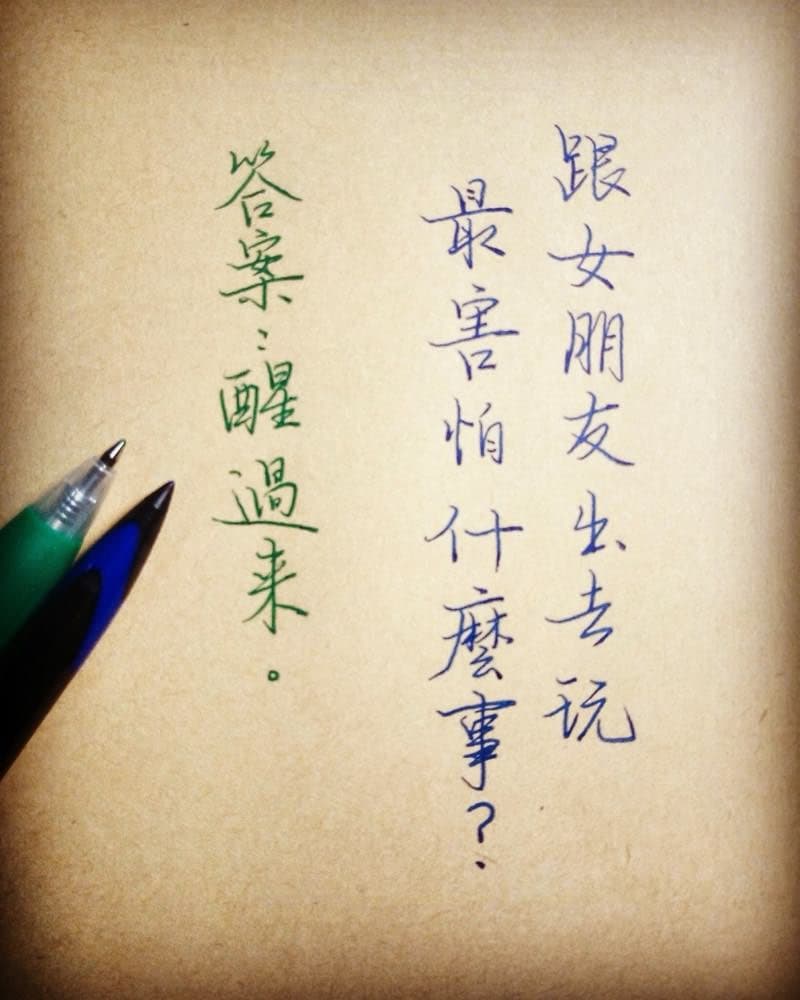 跟女朋友出去玩
最害怕什麼事？
答案：醒過來。